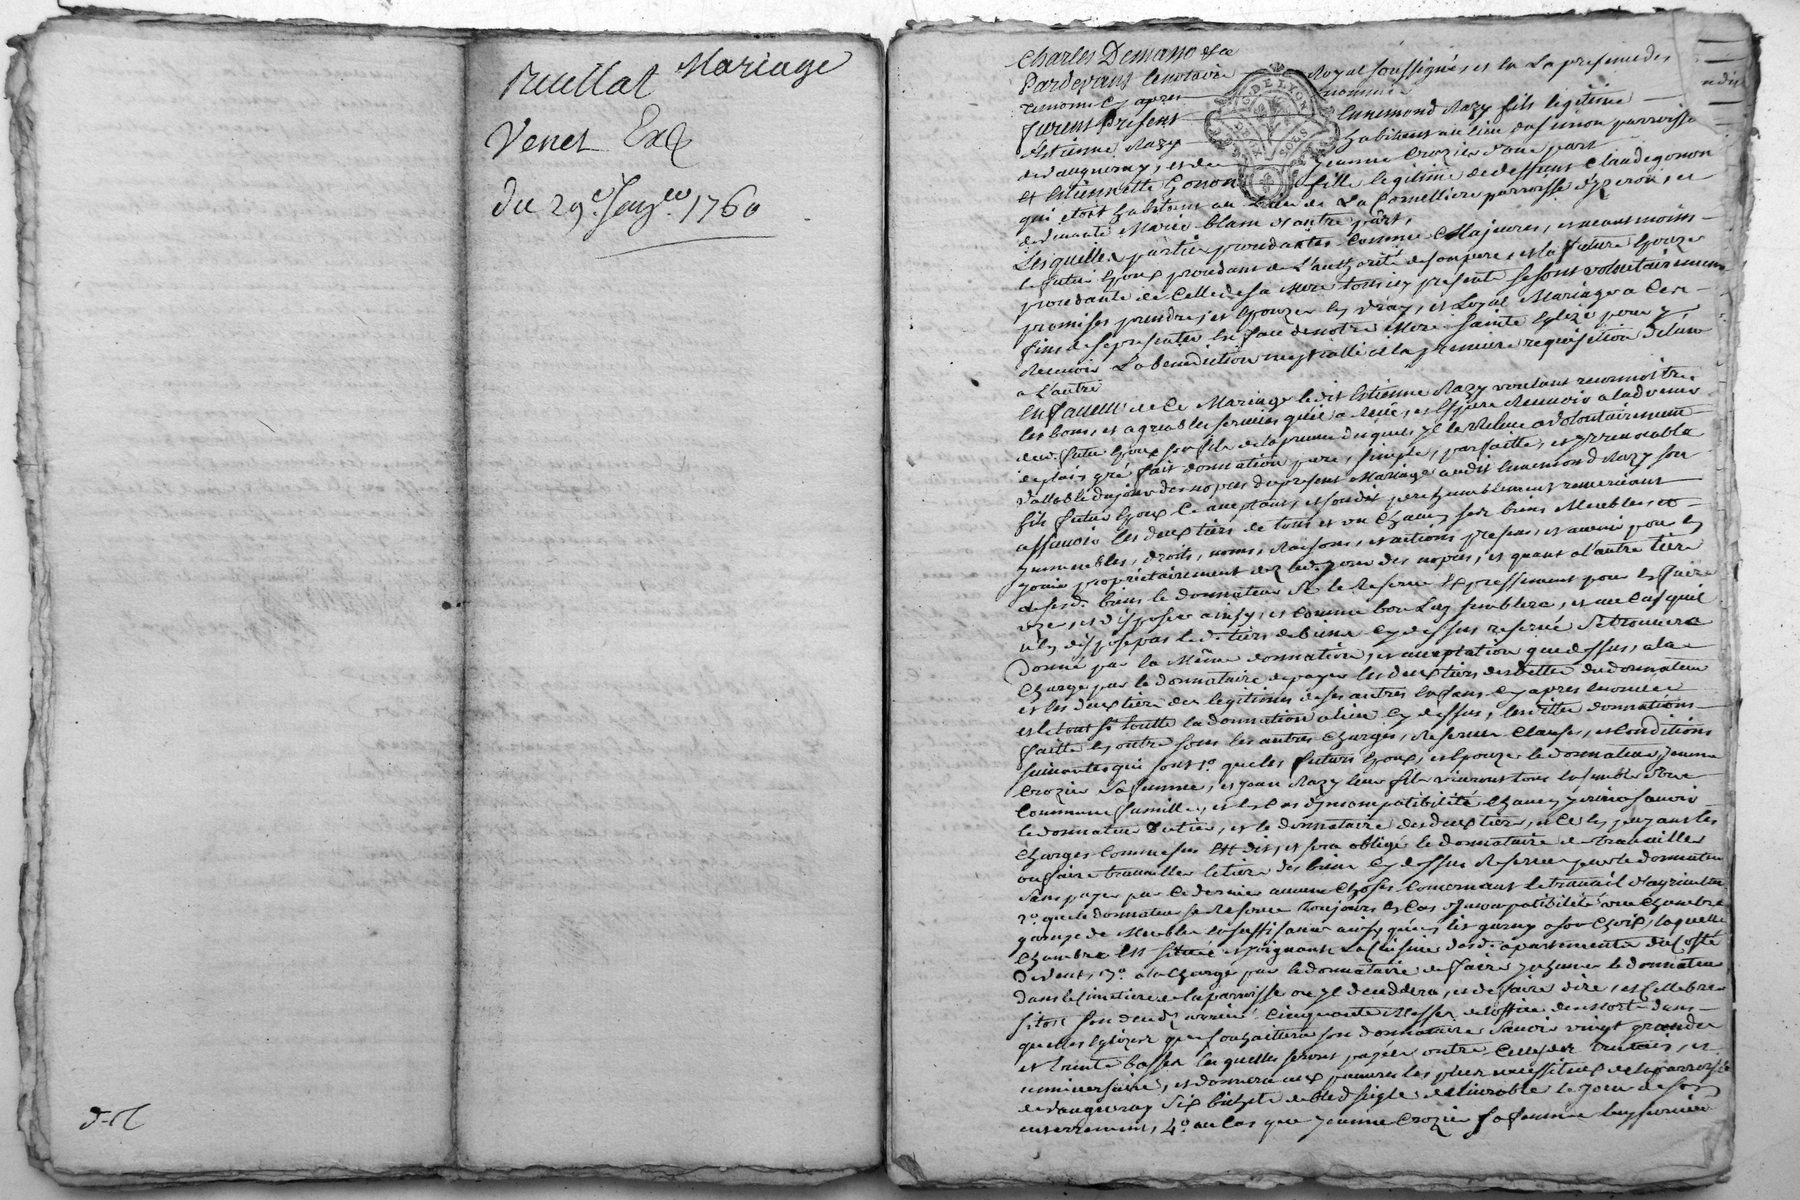 Mariage
Ruellat
Venet Exp
du 29e Janv. 1760
Charles Demasso &ca
Pardevant le notaire Royal soussigné, et en la presence des
temoins cy apres nommés
Furent Presents Ennemond Razy fils legitime
d'Estienne Razy habitant au lieu de parroisse
de Vaugneray, et de Jeanne Crozier d'une part
Et Estiennette Gonon fille legitime de deffunt Claude Gonon
qui etoit habitant au lieu de La Cornelliere parroisse d'yzeron, et
de vivante Marie blanc d'autre part,
Lesquelles parties procedantes comme Majeures, et neantmoins
le futur Epoux procedant de L'authorité de son pere, et la future Epouze
procedante de Celle de sa Mere tous icy presents se sont volontairement
promises prendre, et Epouzer en vray, et Loyal Mariage a Ces
fins de se presenter en face de notre Mere Sainte Eglize pour y
Recevoir La benediction nuptialle a la premiere requisition de l'un
a L'autre
En faveur de Ce Mariage ledit Estienne Razy voulant reconnoitre
les bons, et agreables services qu'il a Receu, et Espere Recevoir a ladvenir
dud. futur Epoux son fils de la preuve desquels il le Releve a volontairement
de plais gré fait donnation pure, simple, parfaitte, et yrrevocable
vallable du jour des nopces du present Mariage audit Ennemond Razy son
fils futur Epoux Ce acceptant, et sondit pere humblement remerciant
assavoir les deux tiers de tous et un Chacun ses biens Meubles et
ymmeubles, droits, noms, Raisons, et actions presens, et avenir pour en
jouir propriétairement dez led. jour des nopces, et quant a l'autre tiers
de sesd. biens le donnateur se le Reserve Expressement pour en faire
uzer, et disposer ainsy, et comme bon Luy semblera, et au Cas qu'il
n'en dispose pas led. tiers de biens Cy dessus reservé se trouvera
donné par la Même donnation, et acceptation que dessus, a la
Charge par le donnataire de payer les deux tiers des dettes du donnateur
et les deux tiers des legitimes de ses autres Enfans Cy apres
et le tout sy toutte la donnation a lieu Cy dessus, lesdittes donnations
faitte En outre sous les autres Charges, Reserves Clauses, et Conditions
suivantes qui sont 1o. que les futurs Epoux, et Epouze le donnateur, Jeanne
Crozier sa femme, et Jean Razy leur fils vivront tous Ensemble d'une
Commune famille, et En Cas d'yncompatibilité Chacun jouira savoir
le donnateur du tier, et le donnataire des deux tiers, et Ce En payant les
Charges Comme sus Est dit, et sera obligé le donnataire de travailler
ou faire travailler le tiers des biens Cy dessus Reservé par le donnateur
sans payer par Ce dernier aucune Choses Concernant le travail d'agriculture
2o. que le donnateur se Reserve toujours En Cas d'yncompatibilité une Chambre
garnye de Meubles En suffisance ainsy qu'un lit garny a son Choix, laquelle
Chambre Est Située et joignant La Cuisine desd. apartements du Costé
de vent, 3o. a la Charge par le donnataire de faire ynhumer le donnateur
dans le Cimetiere de la parroisse ou il deceddera, et de faire dire, et Cellebrer
sitot son deceds arrivé Cinquante Messes de l'office des morts dans
quelles Eglizes que souhaittera son donnataire savoir vingt grandes
et trente basses lesquelles seront payées outre Celles des et
anniversaire, et donnera aux pauvres les plus necessiteux de la parroisse
de Vaugneray Six bichets de bled seigle delivrable le jour de son
enterrement, 4o. au Cas que Jeanne Crozier sa femme luy survive